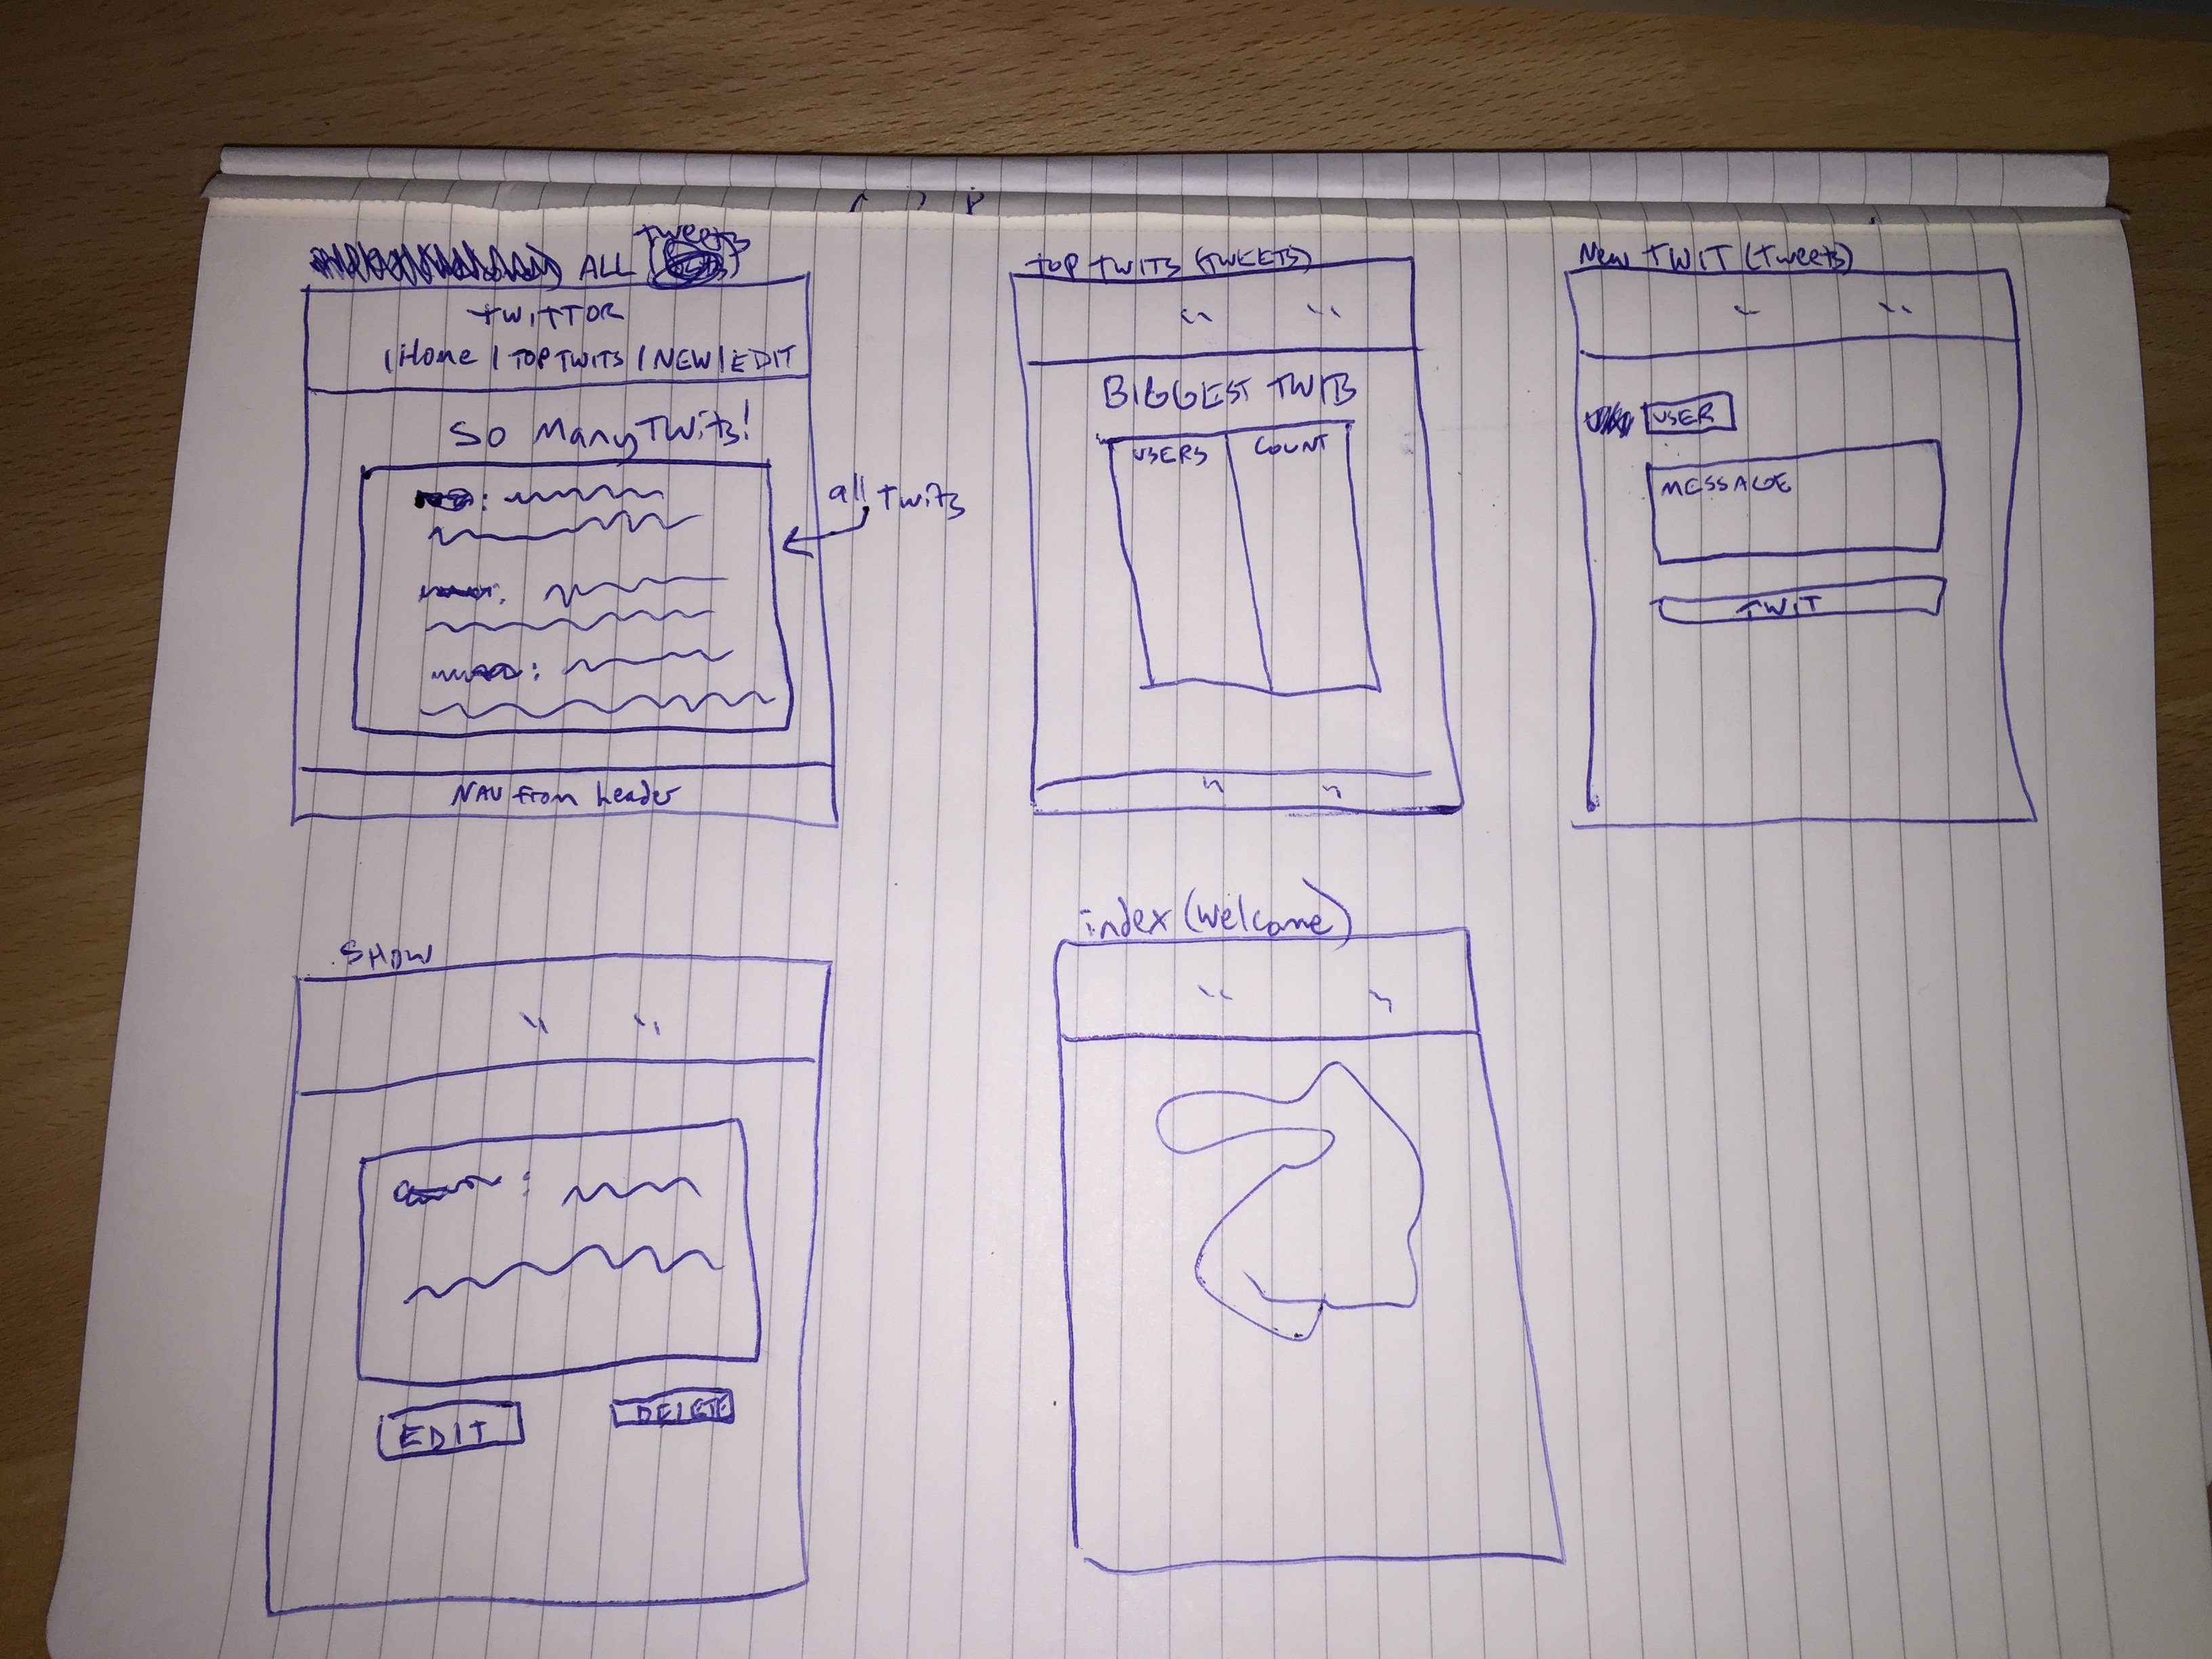 ALL (tweets)
TWITTOR
| Home | TOP TWITS | NEW | EDIT
SO Many TWits!
all Twits
NAV from header
TOP TWITS (TWEETS)
" "
BIGGEST TWITS
USERS COUNT
" "
New TWIT (Tweets)
" "
USER
MESSAGE
TWIT
SHOW
" "
EDIT
DELETE
index (welcome)
" "